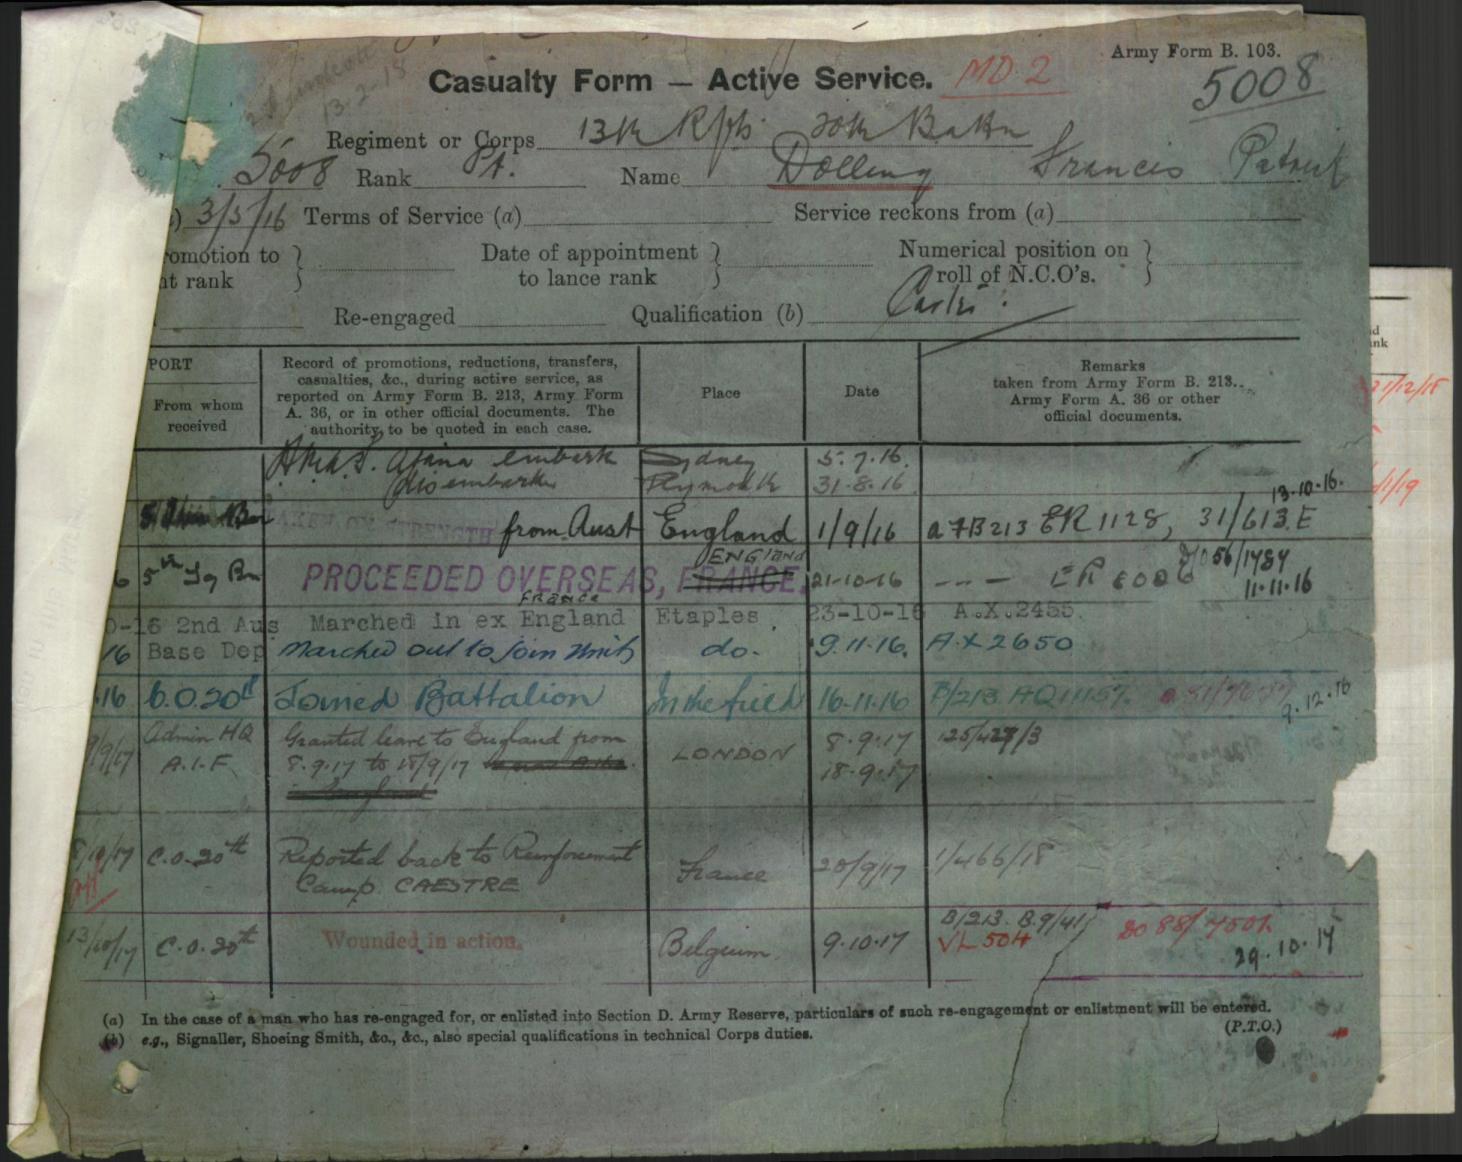 Army Form B. 103.
Casualty Form — Active Service.
MD 2
5008
13-2-18
Regiment or Corps 13th Rfts 20th Battn
5008 Rank Pt. Name Dolling Francis Patrick
3/5/16 Terms of Service (a) Service reckons from (a)
omotion to
nt rank
Date of appointment
to lance rank
Numerical position on
roll of N.C.O's.
Re-engaged Qualification (b)
PORT
From whom
received
Record of promotions, reductions, transfers,
casualties, &c., during active service, as
reported on Army Form B. 213, Army Form
A. 36, or in other official documents. The
authority to be quoted in each case.
Place
Date
Remarks
taken from Army Form B. 213.
Army Form A. 36 or other
official documents.
embark Sydney 5.7.16.
disembark Plymouth 31.8.16
13.10.16.
TAKEN ON STRENGTH from Aust England 1/9/16 a FB213 ER 1128, 31/613 E
ENGLAND
6 5th Tg Bn PROCEEDED OVERSEAS, FRANCE. 21-10-16 --- ER 56/1784
11.11.16
France
0-16 2nd Aus Marched in ex England Etaples 23-10-16 A.X.2455.
16 Base Dep Marched out to join Unit do. 9.11.16. A.X 2650
.16 C.O. 20th Joined Battalion In the field 16.11.16 B/213
9.12.16
9/9/17 Admin HQ Granted leave to England from LONDON 8.9.17
A.I.F. 8.9.17 to 18/9/17 18.9.17
England
/10/17 C.O. 20th Reported back to Reinforcement France 20/9/17 1/466/18
Camp. CAESTRE
13/10/17 C.O. 20th Wounded in action. Belgium. 9.10.17 B/213. B.9/41
VL 504
29.10.17
(a) In the case of a man who has re-engaged for, or enlisted into Section D. Army Reserve, particulars of such re-engagement or enlistment will be entered.
(b) e.g., Signaller, Shoeing Smith, &c., &c., also special qualifications in technical Corps duties.
(P.T.O.)
nd
ank
21/12/18
1/19